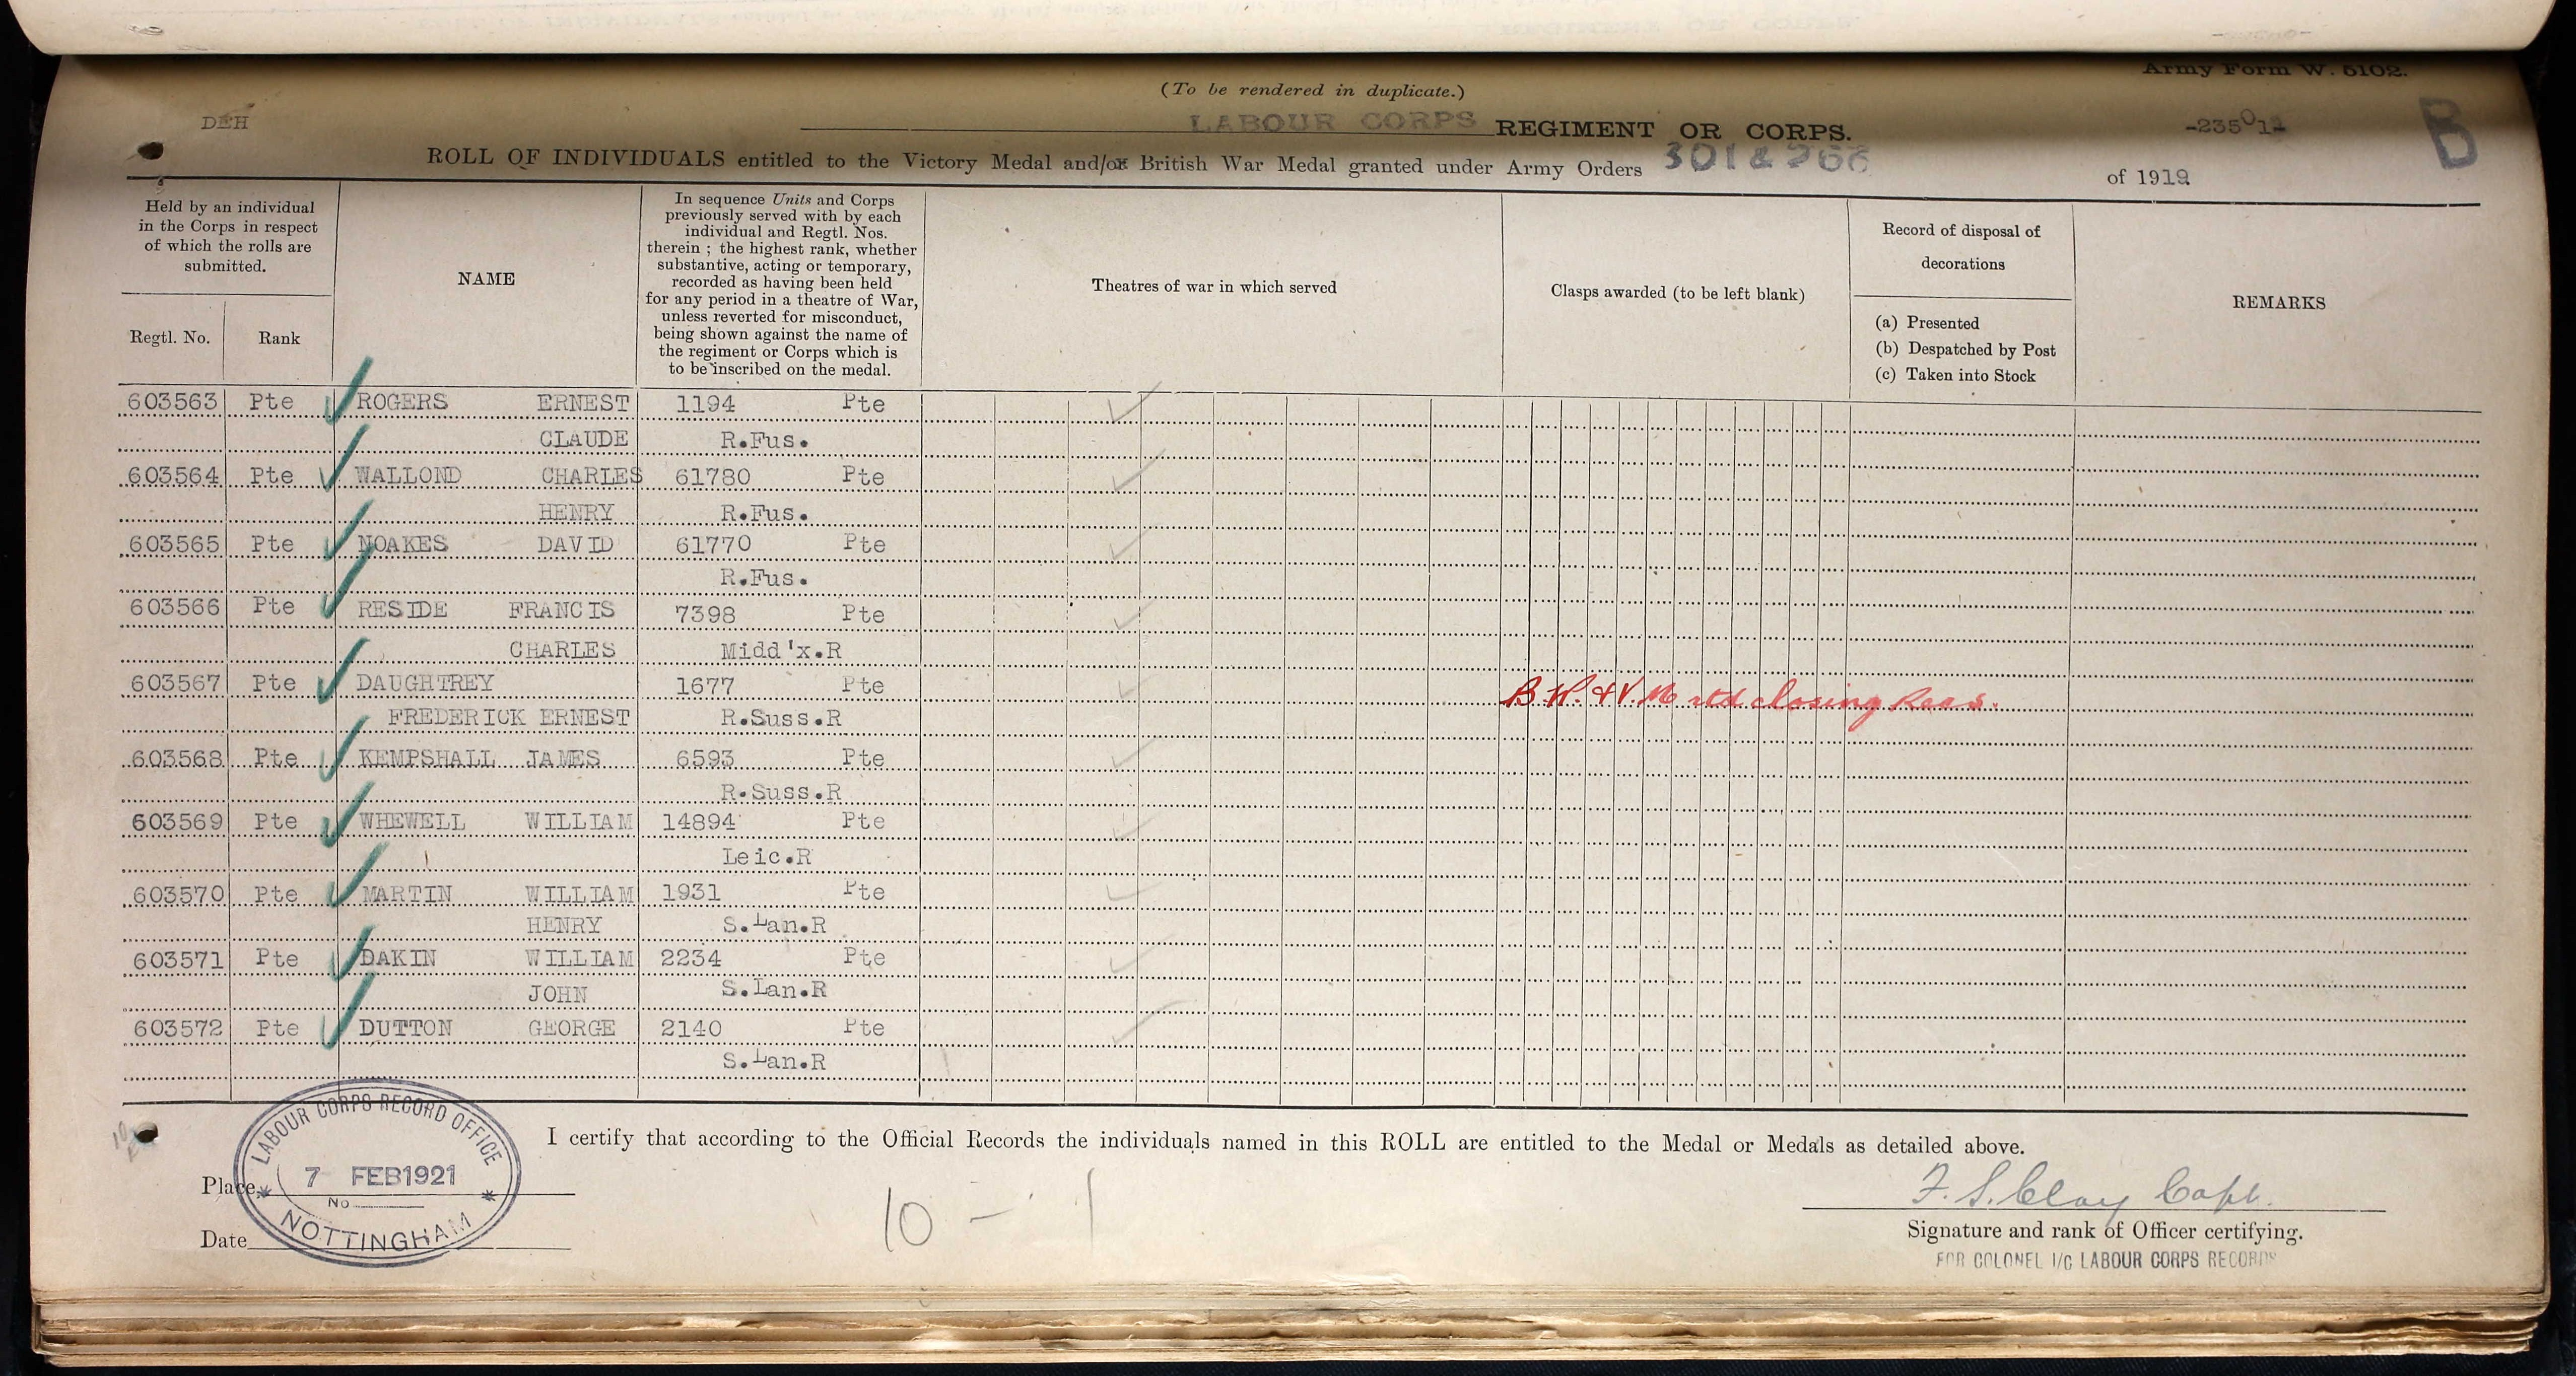 Army Form W. 5102.
(To be rendered in duplicate.)
DEH
LABOUR CORPS REGIMENT OR CORPS.
B
ROLL OF INDIVIDUALS entitled to the Victory Medal and/or British War Medal granted under Army Orders 301 & 266 of 1919
Held by an individual
in the Corps in respect
of which the rolls are
submitted.
Regtl. No.
Rank
NAME
In sequence Units and Corps
previously served with by each
individual and Regtl. Nos.
therein ; the highest rank, whether
substantive, acting or temporary,
recorded as having been held
for any period in a theatre of War,
unless reverted for misconduct,
being shown against the name of
the regiment or Corps which is
to be inscribed on the medal.
Theatres of war in which served
Clasps awarded (to be left blank)
Record of disposal of
decorations
(a) Presented
(b) Despatched by Post
(c) Taken into Stock
REMARKS
603563 Pte ROGERS ERNEST 1194 Pte
CLAUDE R.Fus.
603564 Pte WALLOND CHARLES 61780 Pte
HENRY R.Fus.
603565 Pte NOAKES DAVID 61770 Pte
R.Fus.
603566 Pte RESIDE FRANCIS 7398 Pte
CHARLES Midd'x.R
603567 Pte DAUGHTREY 1677 Pte B.W. & V.M rtd closing Recs.
FREDERICK ERNEST R.Suss.R
603568 Pte KEMPSHALL JAMES 6593 Pte
R.Suss.R
603569 Pte WHEWELL WILLIAM 14894 Pte
Leic.R
603570 Pte MARTIN WILLIAM 1931 Pte
HENRY S.Lan.R
603571 Pte DAKIN WILLIAM 2234 Pte
JOHN S.Lan.R
603572 Pte DUTTON GEORGE 2140 Pte
S.Lan.R
I certify that according to the Official Records the individuals named in this ROLL are entitled to the Medal or Medals as detailed above.
LABOUR CORPS RECORD OFFICE
7 FEB 1921
No
NOTTINGHAM
Place
Date
10 - 1
F. S. Clay Capt.
Signature and rank of Officer certifying.
FOR COLONEL I/C LABOUR CORPS RECORDS